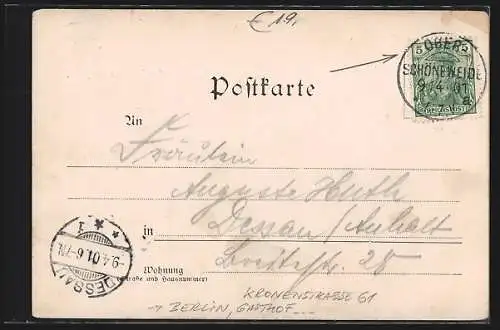 €19,
Postkarte
5
OBER-
SCHÖNEWEIDE
9/4 01
a
An
Fräulein
Auguste Huth
in Dessau/Anhalt
28
Wohnung
(Straße und Hausnummer)
DESSAU
-9.4.01.6-7N.
* 1 *
KRONENSTRASSE 61
→ BERLIN, GASTHOF...